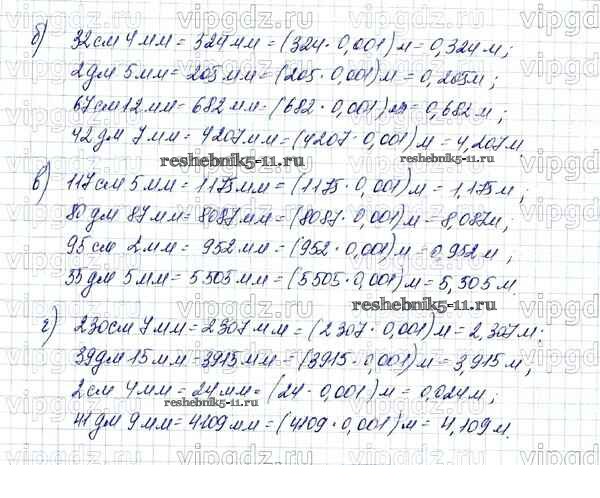 б) 32см 4мм = 324мм = (324·0,001)м = 0,324м;
2дм 5мм = 205мм = (205·0,001)м = 0,205м;
67см 12мм = 682мм = (682·0,001)м = 0,682м;
42дм 7мм = 4207мм = (4207·0,001)м = 4,207м.
reshebnik5-11.ru reshebnik5-11.ru
в) 117см 5мм = 1175мм = (1175·0,001)м = 1,175м;
80дм 87мм = 8087мм = (8087·0,001)м = 8,087м;
95см 2мм = 952мм = (952·0,001)м = 0,952м;
55дм 5мм = 5505мм = (5505·0,001)м = 5,505м.
reshebnik5-11.ru
г) 230см 7мм = 2307мм = (2307·0,001)м = 2,307м;
39дм 15мм = 3915мм = (3915·0,001)м = 3,915м;
2см 4мм = 24мм = (24·0,001)м = 0,024м;
reshebnik5-11.ru reshebnik5-11.ru
41дм 9мм = 4109мм = (4109·0,001)м = 4,109м.